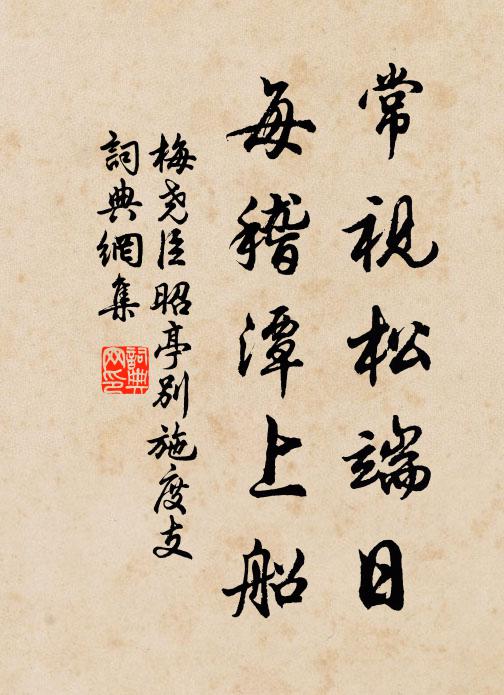 常視松端日
每稽潭上船
梅尧臣昭亭別施度支
詞典網集
詞典网印